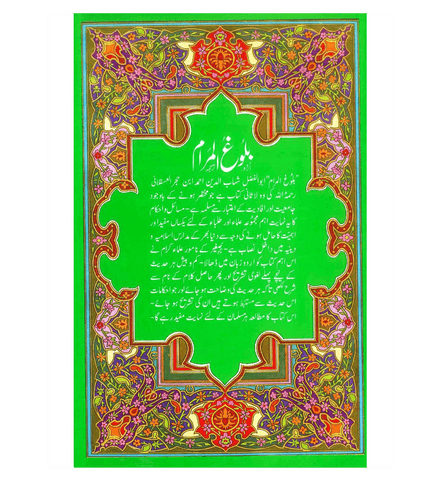 بلوغ المرام
"بلوغ المرام" ابوالفضل شہاب الدین احمد ابن حجر العسقلانی
رحمۃ اللہ کی وہ لافانی کتاب ہے جو مختصر ہونے کے باوجود
جامعیت اور افادیت کے اعتبار سے مسلمہ ہے۔ مسائل و احکام
کا یہ نہایت اہم مجموعہ علماء اور طلباء کے لئے یکساں مفید اور
اہمیت کا حامل ہونے کی وجہ سے دنیا بھر کے مدارس اسلامیہ و
دینیہ میں داخل نصاب ہے۔ برصغیر کے نامور علماء کرام نے
اس اہم کتاب کو اردو زبان میں ڈھالا۔ ہر حدیث
کے لئے پہلے لغوی تشریح اور پھر حاصل کلام کے نام سے
شرح لکھی تاکہ ہر حدیث کی وضاحت ہو جائے اور جو احکامات
اس حدیث سے مستنبط ہوتے ہیں ان کی تشریح ہو جائے۔
اس کتاب کا مطالعہ ہر مسلمان کے لئے نہایت مفید رہے گا۔